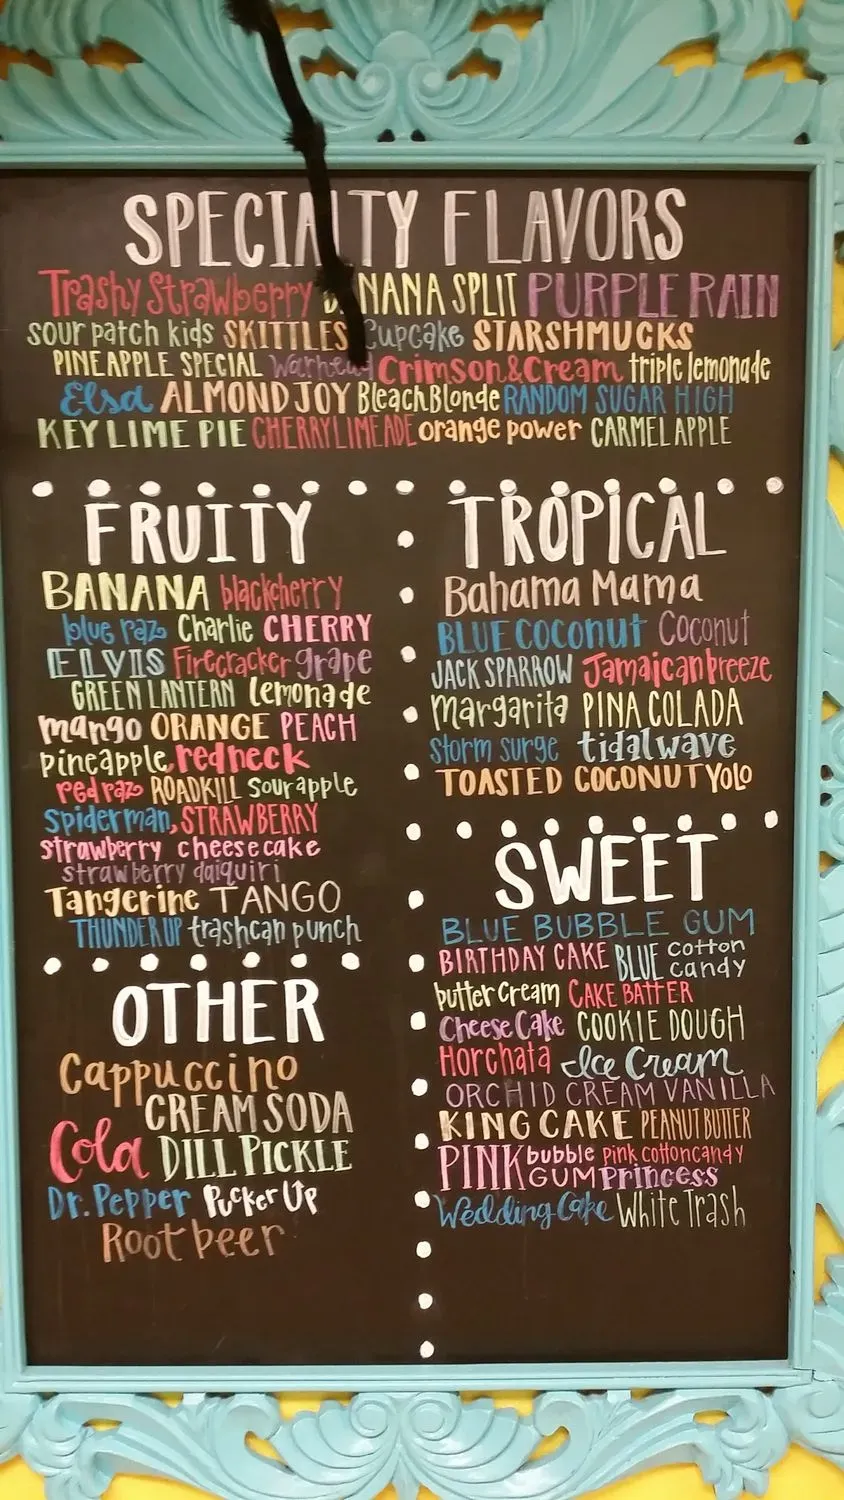 SPECIALTY FLAVORS
Trashy Strawberry BANANA SPLIT PURPLE RAIN
sour patch kids SKITTLES Cupcake STARSHMUCKS
PINEAPPLE SPECIAL Warhead Crimson & Cream triple lemonade
Elsa ALMOND JOY Bleach Blonde RANDOM SUGAR HIGH
KEY LIME PIE CHERRY LIMEADE orange power CARMEL APPLE
FRUITY
BANANA blackcherry
blue raz Charlie CHERRY
ELVIS Firecracker grape
GREEN LANTERN lemonade
mango ORANGE PEACH
pineapple, redneck
red raz ROADKILL sour apple
Spiderman, STRAWBERRY
strawberry cheesecake
strawberry daiquiri
Tangerine TANGO
THUNDER UP trashcan punch
OTHER
Cappuccino
CREAM SODA
Cola DILL PICKLE
Dr. Pepper Pucker Up
Root beer
TROPICAL
Bahama Mama
BLUE coconut Coconut
JACK SPARROW Jamaican breeze
margarita PINA COLADA
storm surge tidal wave
TOASTED COCONUT YOLO
SWEET
BLUE BUBBLE GUM
BIRTHDAY CAKE BLUE cotton candy
butter cream CAKE BATTER
Cheese Cake COOKIE DOUGH
Horchata Ice Cream
ORCHID CREAM VANILLA
KING CAKE PEANUT BUTTER
PINK bubble GUM pink cotton candy
Princess
Wedding Cake White Trash